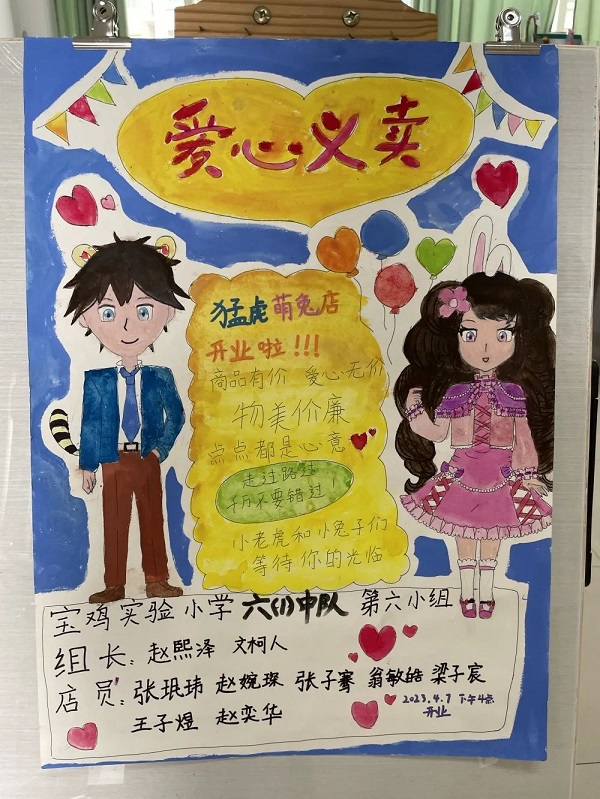 爱心义卖
猛虎萌兔店
开业啦!!!
商品有价 爱心无价
物美价廉
点点都是心意
走过路过
千万不要错过!
小老虎和小兔子们
等待你的光临
宝鸡实验小学六(1)中队 第六小组
组长:赵熙泽 文柯人
店员:张珉玮 赵婉琛 张子骞 翁敏皓 梁子宸
王子煜 赵奕华
2023.4.7 下午4点
开业